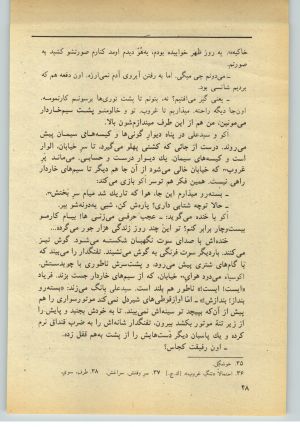 خاکیه». یه روز ظهر خوابیده بودم، یه‌هو دیدم اومد کنارم صورتشو کشید به
صورتم.
ـ می‌دونم چی میگی. اما به رفتن آبروی آدم نمی‌ارزه. اون دفعه هم که
بردیم شانسی بود.
ـ یعنی گیر می‌افتیم؟ نه. بتونم تا پشت توری‌ها برسونیم کارتمومه.
اون‌جا دیگه راحته. میذاریم تا غروب. تو و خالومنو پشت سیم‌خاردار
می‌مونین، من هم از این طرف میندازم‌شون بالا.
آکو و سیدعلی در پناه دیوار گونی‌ها و کیسه‌های سیمان پیش
می‌روند. درست از جائی که کشتی پهلو می‌گیرد، تا سر خیابان، الوار
است و کیسه‌های سیمان. یك دیوار درست و حسابی. می‌ماند پَرِ
غروب³⁶ که خیابان خالی می‌شود از آن جا هم دیگر تا سیم‌های خاردار
راهی نیست. همین فکر هم توسر آکو بازی می‌کند:
ـ بسته‌رو میذارم این جا. هوا که تاریك شد میام سر بخش³⁷.
ـ حالا توچه شتابی داری؟ پاره‌ش کن، شبی یه‌دونه‌شو ببر.
آکو با خنده می‌گوید: ـ عجب حرفی می‌زنی‌ ها! بیام کارمو
بیست‌وچار برابر کنم؟ تو این چند روز زندگی هزار جور می‌گرده...
خنده‌اش با صدای سوت نگهبان شکسته می‌شود. گوش تیز
می‌کنند. باردیگر سوت فرنگی به گوش می‌نشیند. تفنگدار را می‌بیند که
با گام‌های شتری پیش می‌رود، و پشت‌سرش ناطوری با چوبدستش.
آکوسیاه می‌دود هوای³⁸ خیابان، که از سیم‌های خاردار جست بزند. فریاد
«ایست! ایست!» ناطور هم بلند است. سیدعلی بانگ می‌زند: «بسته‌رو
بنداز! بندازش!» ـ امّا آواز قوطی‌های شیردل نمی‌کَند موتورسواری را هم
پیش از آن‌که بپیچد تو سینه‌اش نمی‌بیند. تا به خودش بجنبد و پایش را
از زیر تنهٔ موتور بکشد بیرون، تفنگدار شانه‌اش را به ضرب قنداق نرم
کرده و یك پاسبان دیگر دست‌هایش را از پشت به‌هم قفل کرده.
ـ اون رفیقت کجاس؟
۳۵. خوشگل.
۳۶. احتمالاً «تنگ غروب» (ك.ج.) ۳۷. سر وقتش، سراغش. ۳۸. طرف، سوی.
۲۸